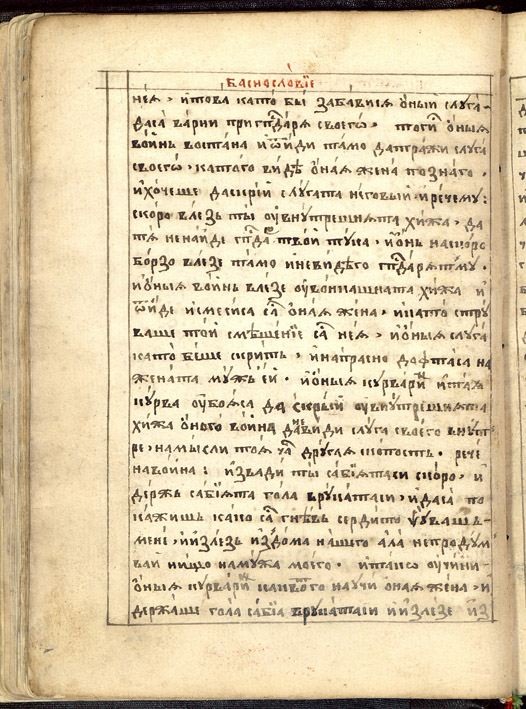 Баснословїе
нея, и това като бы забавися ѻный слуга
даса варни при гпⷭдаря своего, тогиⷡ ѻныѧ
войнъ востана и ѿиди тамо да тражи слуга
своего, каптаго виде ѻная жена позна го,
и хочеше даскрей слугата неговый и рече му:
скоро влезь ты ѹ внутрешнята хижа, да
тя ненайде гпⷭдаⷬ твой тука, и ѻнь наскоро
борзо влезе тамо и невидѣ го гпⷭдаря тму,
и ѻныя войнь влезе ѹ вонкашната хижа и
ѿйде и смесиса саⷭ ѻная жена, и като стру
ваше той смѣшенїе саⷭ нея, и ѻныя слуга
като беше скритъ, и напрасно дофтаса на
жената мужъ ей, и ѻныя курвариⷩ и тая
курва ѹбояса да скрый ѹ внутрешнята
хижа ѻного война да не види слуга своего внут
ре, намысли тоя час другая скопость, рече
на война: извади ты сабїята си скоро, и
держь сабїята гола в руката си, и даса по
кажишь како саⷭ гневъ сердито ѱувашъ
мене, и излезь из дома нашего ала непродум
вай нищо на мужа моего, и тако ѹчини
ѻныя курвариⷩ каквото научи ѻная жена, и
держаше гола сабїа в руката си и излезе из